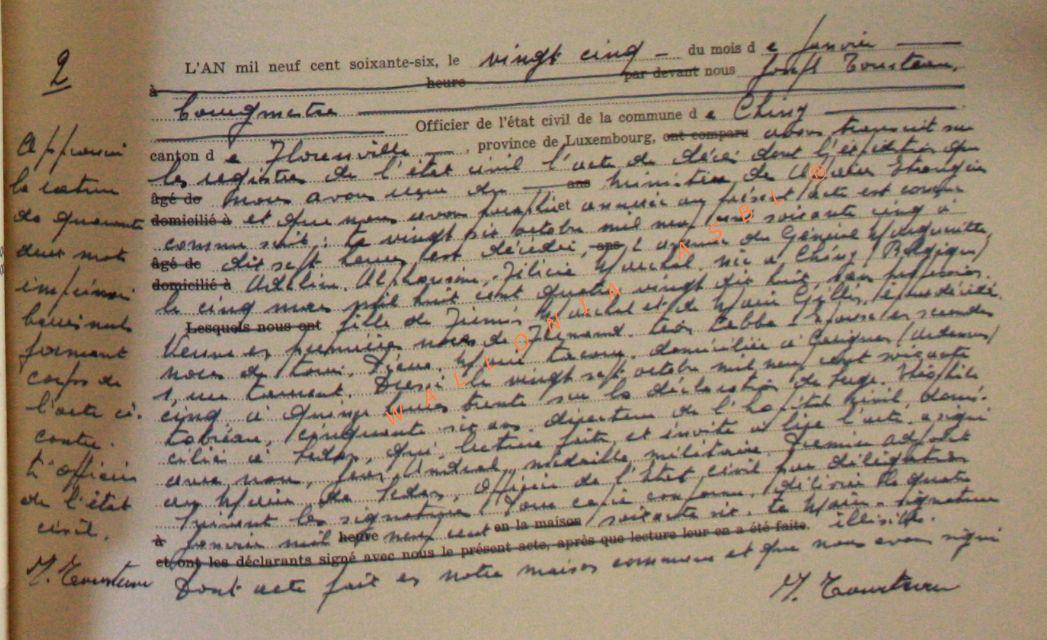 2
L'AN mil neuf cent soixante-six, le vingt cinq du mois de Janvier
à heure par devant nous Joseph Tousteau,
bourgmestre
Officier de l'état civil de la commune de Chiny
canton de Florenville, province de Luxembourg, ont comparu avons transcrit sur
les registres de l'état civil l'acte de décès dont l'expédition que
âgé de nous avons reçue du ans Ministère des Etrangères
domicilié à et que nous avons et annexée au présent acte est conçue
comme suit : Le vingt six octobre mil neuf cent soixante cinq à
âgé de dix sept heures est décédée, ans avenue du Général Margueritte,
domicilié à Adeline, Alphonsine, Félicie Marchal née à Chiny (Belgique)
le cinq mars mil huit cent quatre vingt dix huit, sans profession
Lesquels nous ont fille de Marchal et de Marie Gillet, époux décédés
Veuve en premières noces de Fernand Léon épouse en secondes
noces de Louis, Pierre, domiciliée à Carignan (Ardennes)
Dressé le vingt sept octobre mil neuf cent soixante
cinq à quinze heures trente sur la déclaration de Théophile
cinquante six ans, directeur de l'hôpital civil, domi-
cilié à Sedan, qui, lecture faite, et invité à lire l'acte, a signé
avec nous, Jean médaille militaire, Premier adjoint
au Maire de Sedan, Officier de l'Etat civil par délégation
Suivent les signatures. Pour copie conforme, délivrée le quatre
à Janvier mil heure neuf cent en la maison soixante six. Le Maire. signature
et ont les déclarants signé avec nous le présent acte, après que lecture leur en a été faite. illisible.
Dont acte fait en notre maison communale et que nous avons signé
Approuvé
la rature
de quarante
deux mots
imprimés
formant
corps de
l'acte ci-
contre.
L'Officier
de l'état
civil.
WALLONIA ASBL